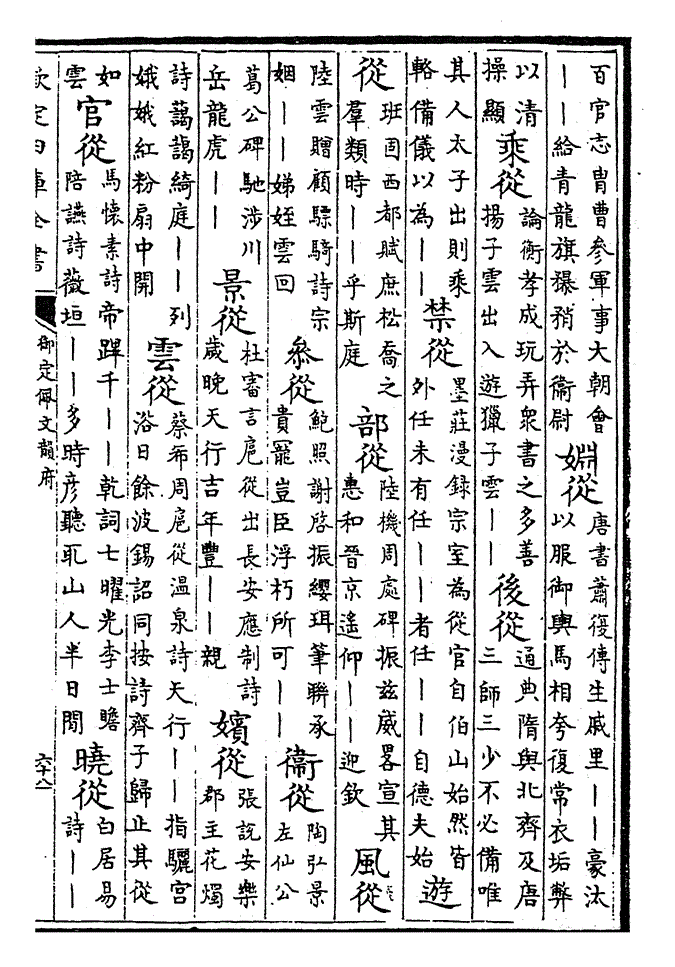 百官志胄曹參軍事大朝會
——給青龍旗𤜼矟於衞尉
婣從
唐書蕭復傳生戚里——豪汰
以服御輿馬相夸復常衣垢弊
以清
操顯
乘從
論衡孝成玩弄衆書之多善
揚子雲出入遊獵子雲——
後從
通典隋與北齊及唐
三師三少不必備唯
其人太子出則乘
輅備儀以為——
禁從
墨莊漫録宗室為從官自伯山始然皆
外任未有任——者任——自德夫始
遊
從
班固西都賦庶松喬之
羣類時——乎斯庭
部從
陸機周處碑振兹威畧宣其
惠和晉京遙仰——迎欽
風從
陸雲贈顧驃騎詩宗
姻——娣姪雲回
參從
鮑照謝啓振纓珥筆聯承
貴寵豈臣浮朽所可——
衞從
陶弘景
左仙公
葛公碑馳涉川
岳龍虎——
景從
杜審言扈從出長安應制詩
歲晚天行吉年豐——親
嬪從
張說安樂
郡主花燭
詩藹藹綺庭——列
娥娥紅粉扇中開
雲從
蔡希周扈從温泉詩天行——指驪宫
浴日餘波錫詔同按詩齊子歸止其從
如
雲
官從
馬懷素詩帝蹕千——乾詞七曜光李士瞻
陪讌詩薇垣——多時彥聽
山人半日閒
曉從
白居易
詩——
欽定四庫全書
御定佩文韻府
六十八